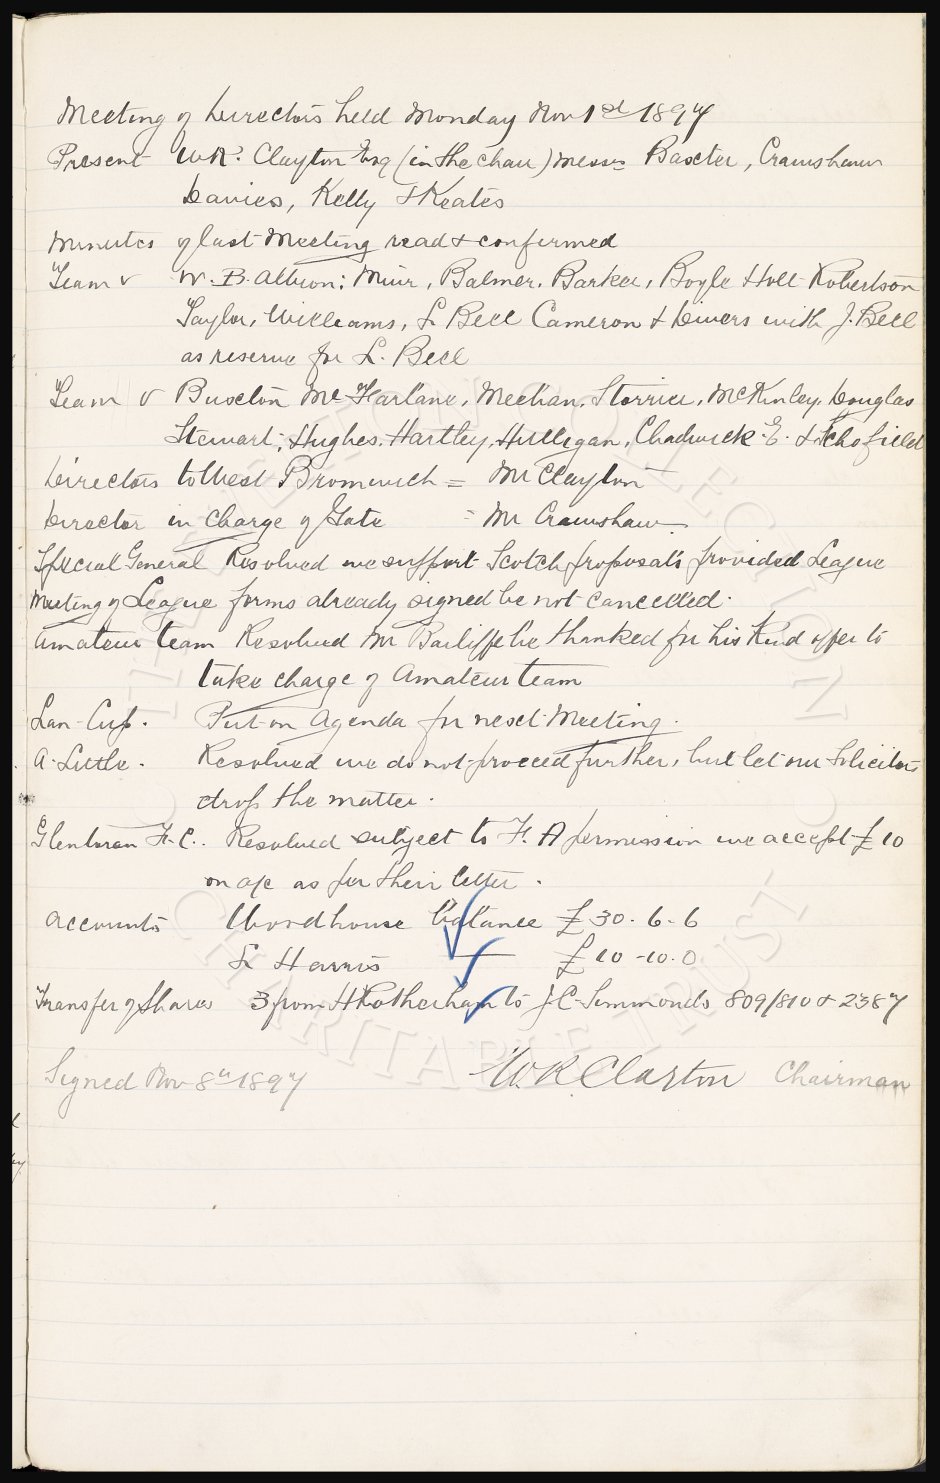 Meeting of Directors held Monday Nov 1st 1897
Present W.R. Clayton Esq (in the chair) Messrs Baxter, Crawshaw
Davies, Kelly & Keates
Minutes of last Meeting read & confirmed
Team v W. B. Albion: Muir, Balmer, Barker, Boyle Holt Robertson
Taylor, Williams, L Bell Cameron & Divers with J. Bell
as reserve for L. Bell
Team v Buxton Mc Farlane, Meehan, Storrier, McKinley, Douglas
Stewart, Hughes, Hartley, Hulligan, Chadwick E. & Schofield
Directors to West Bromwich = Mr Clayton
Director in charge of Gate = Mr Crawshaw
Special General Resolved we support Scotch proposals provided League
Meeting of League forms already signed be not cancelled.
Amateur team Resolved Mr Bailiffe be thanked for his kind offer to
take charge of Amateur team
Lan- Cup. Put on Agenda for next Meeting.
A. Little. Resolved we do not proceed further, but let our Solicitors
drop the matter.
Glentoran F. C. Resolved subject to F. A permission we accept £10
on a/c as per their letter.
Accounts Woodhouse balance £30-6-6
L Harris £10-10-0
Transfer of Shares 3 from H Rotherham to J. C. Simmonds 809/810 & 2387
Signed Nov 8th 1897 W. R. Clayton Chairman
EVERTON COLLECTION
CHARITABLE TRUST